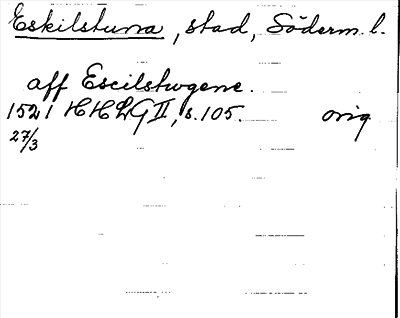 Eskilstuna, stad, Söderm. l.
aff Escilstwgene.
1521 HHLG II, s. 105. orig
27/3